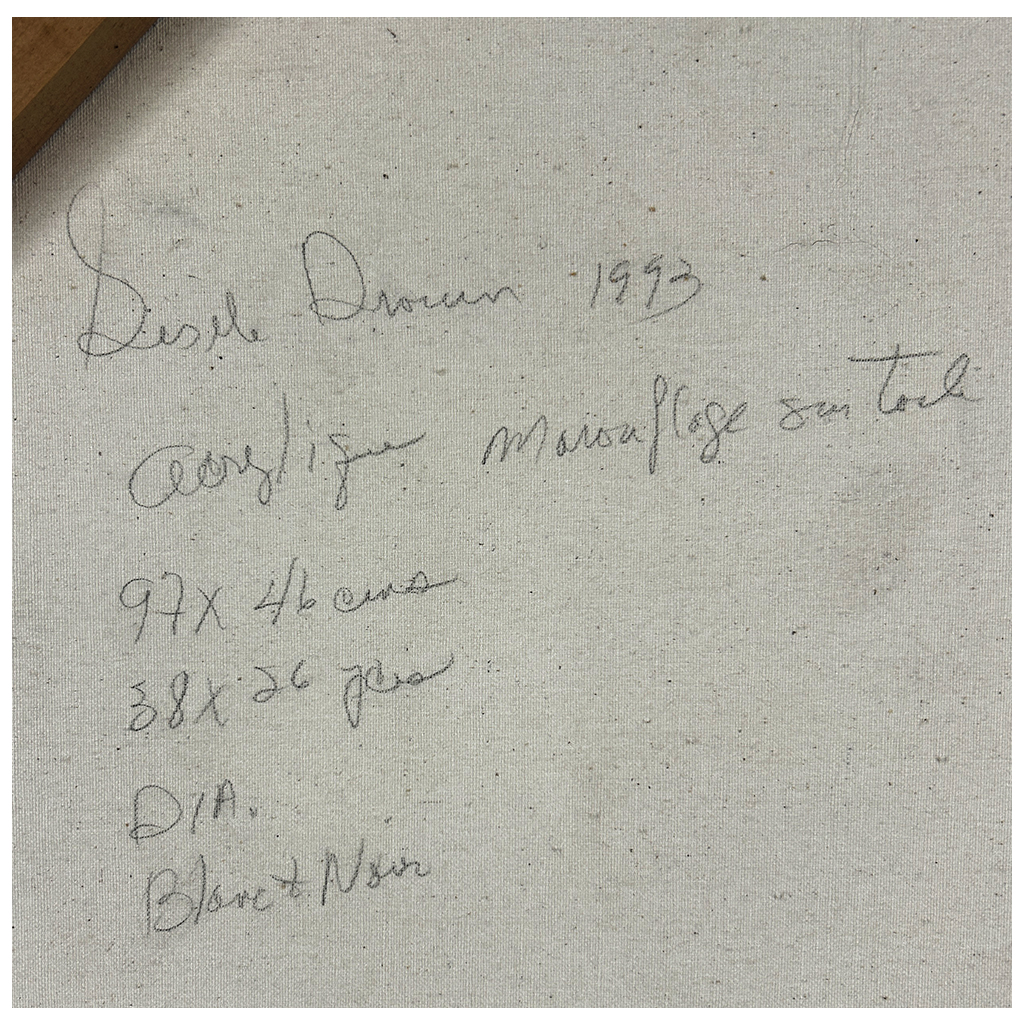 Gisele Drouin 1993
acrylique Marouflage sur toile
97 X 46 cms
38 X 26 pces
DIA.
Blanc & Noir